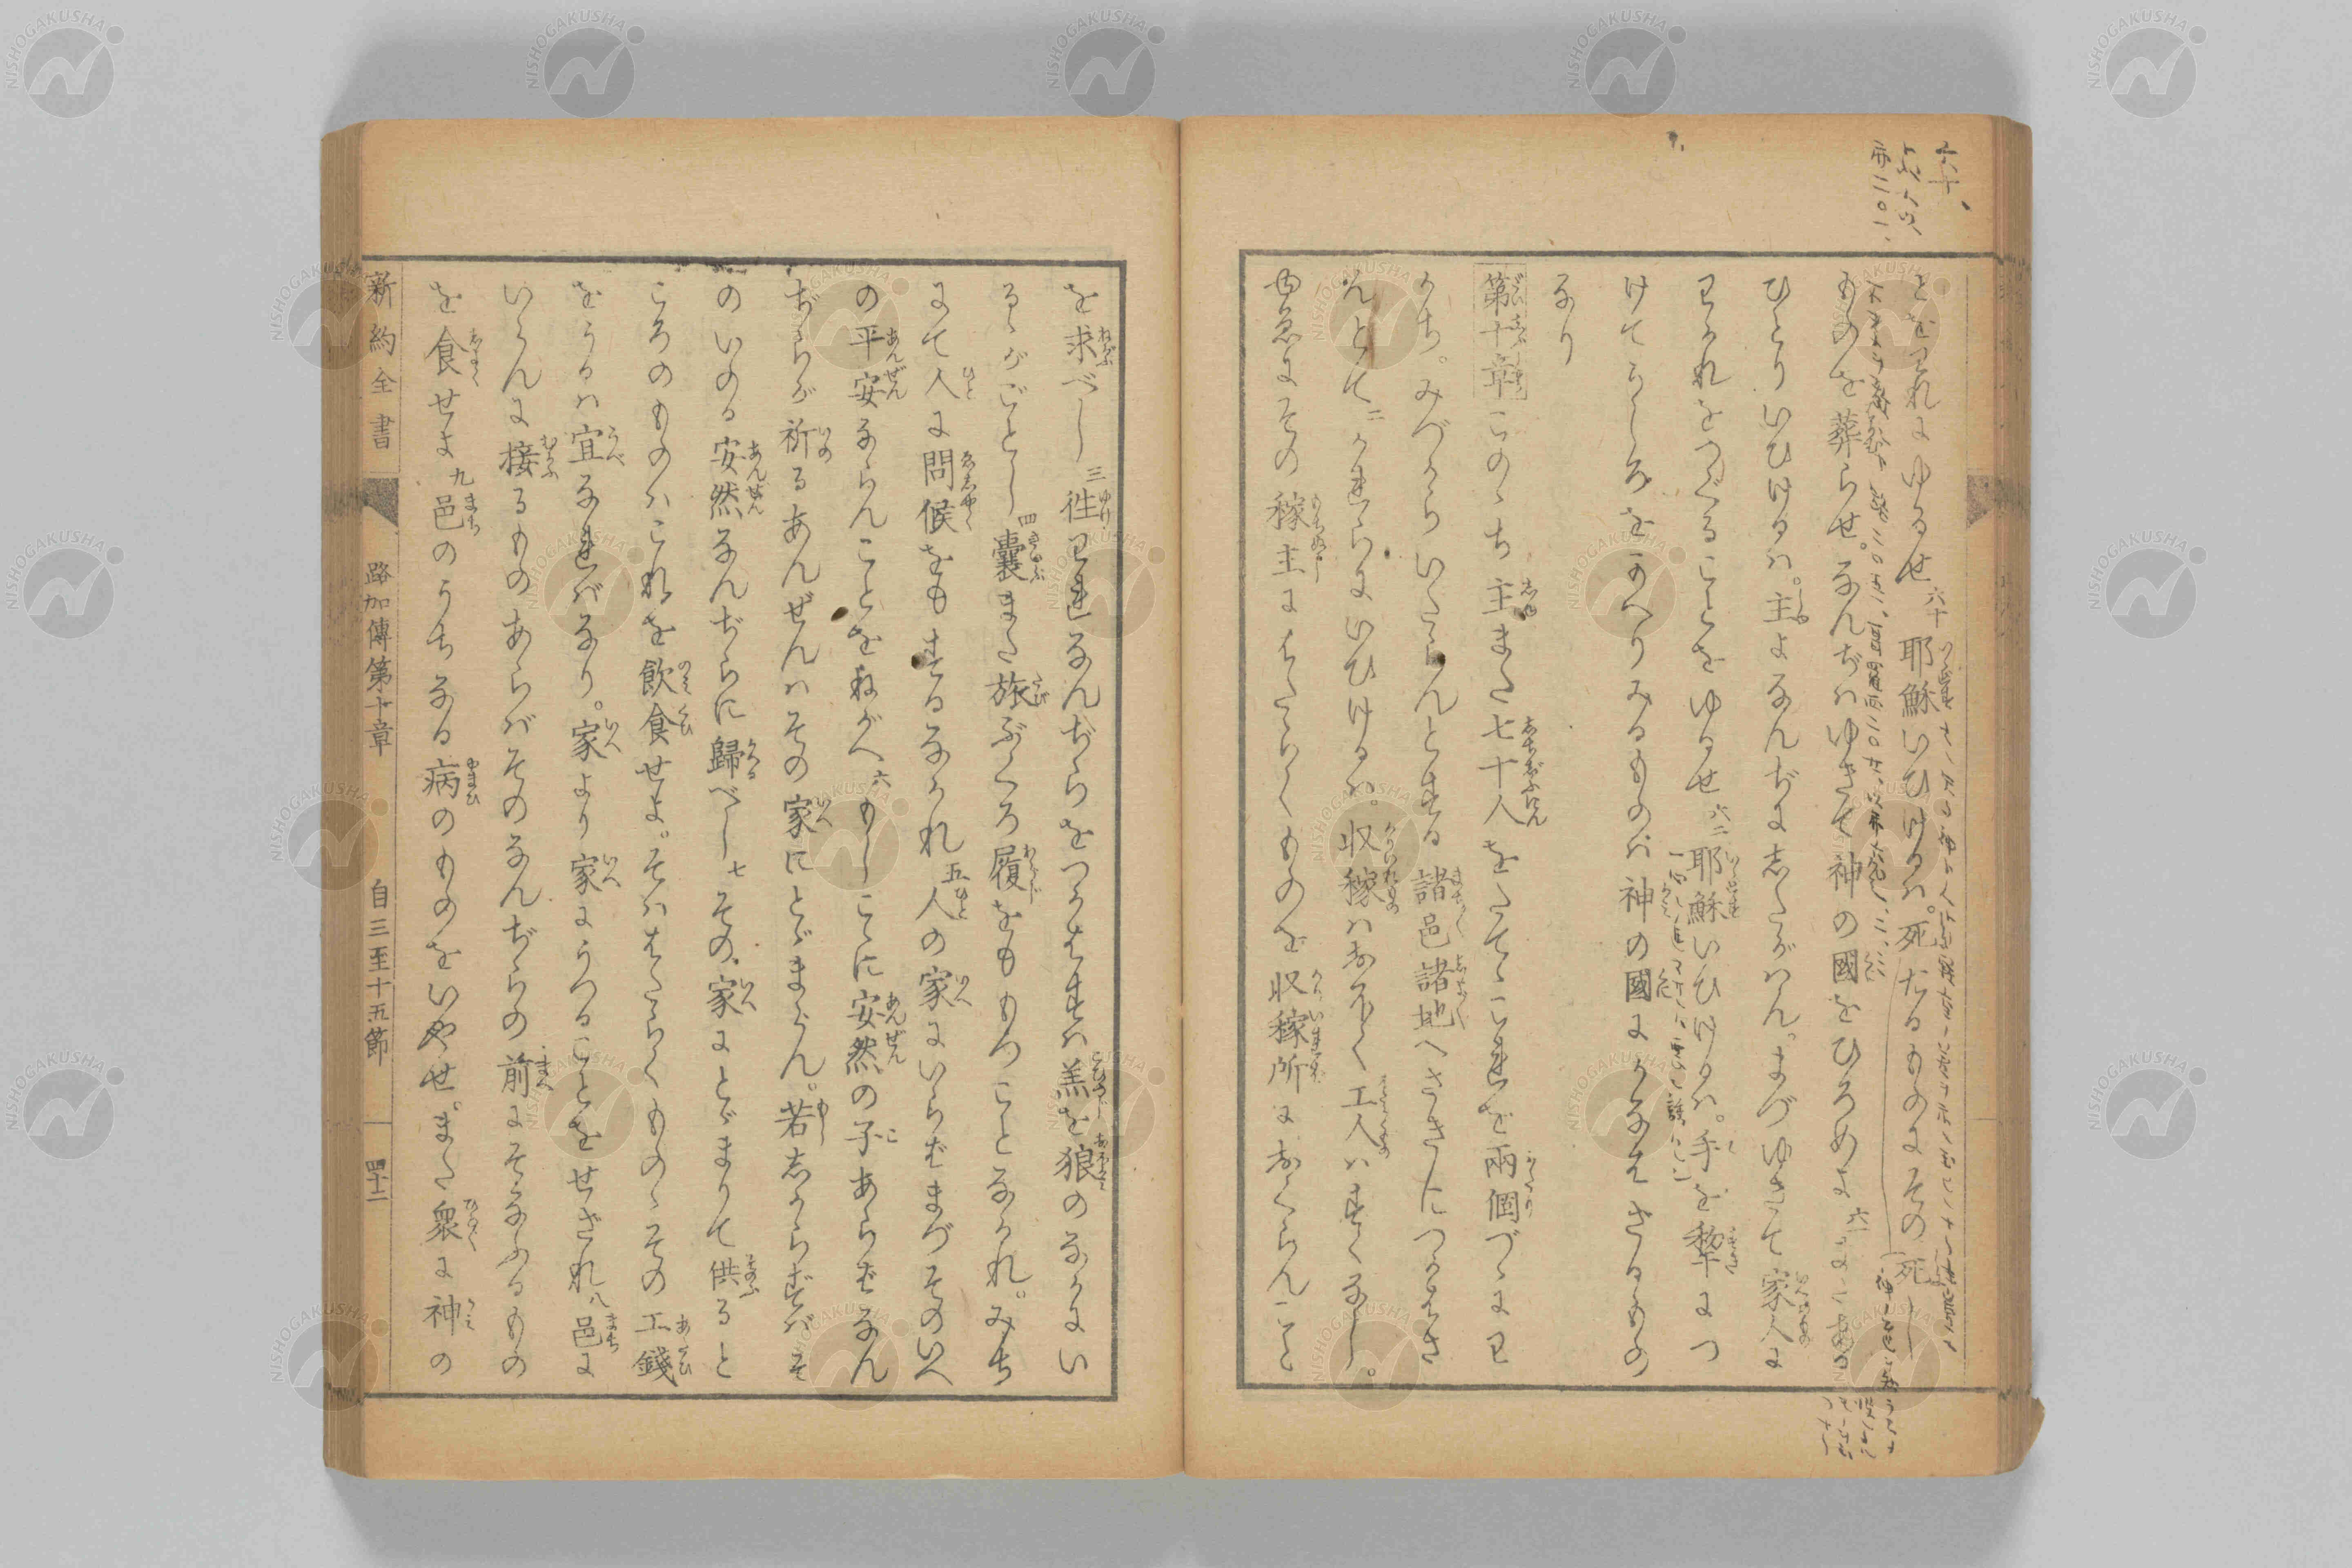 とをわれにゆるせ 六十 耶穌いひけるハ。死たるものにその死し
ものを葬らせ。なんぢハゆきて神の國をひろめよ 六一 またある
ひとりいひけるハ。主よなんぢに志たがハん。まづゆきて家人に
わかれをつぐることをゆるせ 六二 耶穌いひけるハ。手を犂につ
けてうしろをかへりみるものハ神の國にかなはざるもの
なり
第十章 このゝち主また七十人をたてゝこれを兩個づゝにわ
かち。みづからいたらんとする諸邑諸地へさきにつかはさ
んとて 二 かれらにいひけるハ。収稼ハおほく工人ハすくなし。
ゆゑにその稼主にはたらくものを収稼所におくらんこと
を求べし 三 徃われなんぢらをつかはすハ羔を狼のなかにい
るゝがごとし 四 嚢また旅ぶくろ履をももつことなかれ。みち
にて人に問候をもするなかれ 五 人の家にいらばまづそのいへ
の平安ならんことをねがへ 六 もしこゝに安然の子あらばなん
ぢらが祈るあんぜんハその家にとゞまらん。若志からずバそ
のいのる安然なんぢらに歸べし 七 その家にとゞまりて供ると
ころのものハこれを飲食せよ。そハはたらくものゝその工錢
をうるハ宜なれバなり。家より家にうつることをせざれ 八 邑に
いらんに接るものあらバそのなんぢらの前にそなふるもの
を食せよ 九 邑のうちなる病のものをいやせ。また衆に神の
新約全書
路加傳第十章
自三至十五節
四十二